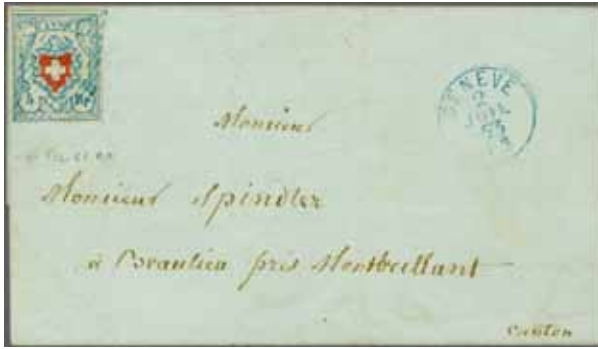 GENÈVE
2
JUIL
53
Monsieur
Monsieur Spindler
à Beaulieu près Montbrillant
Canton